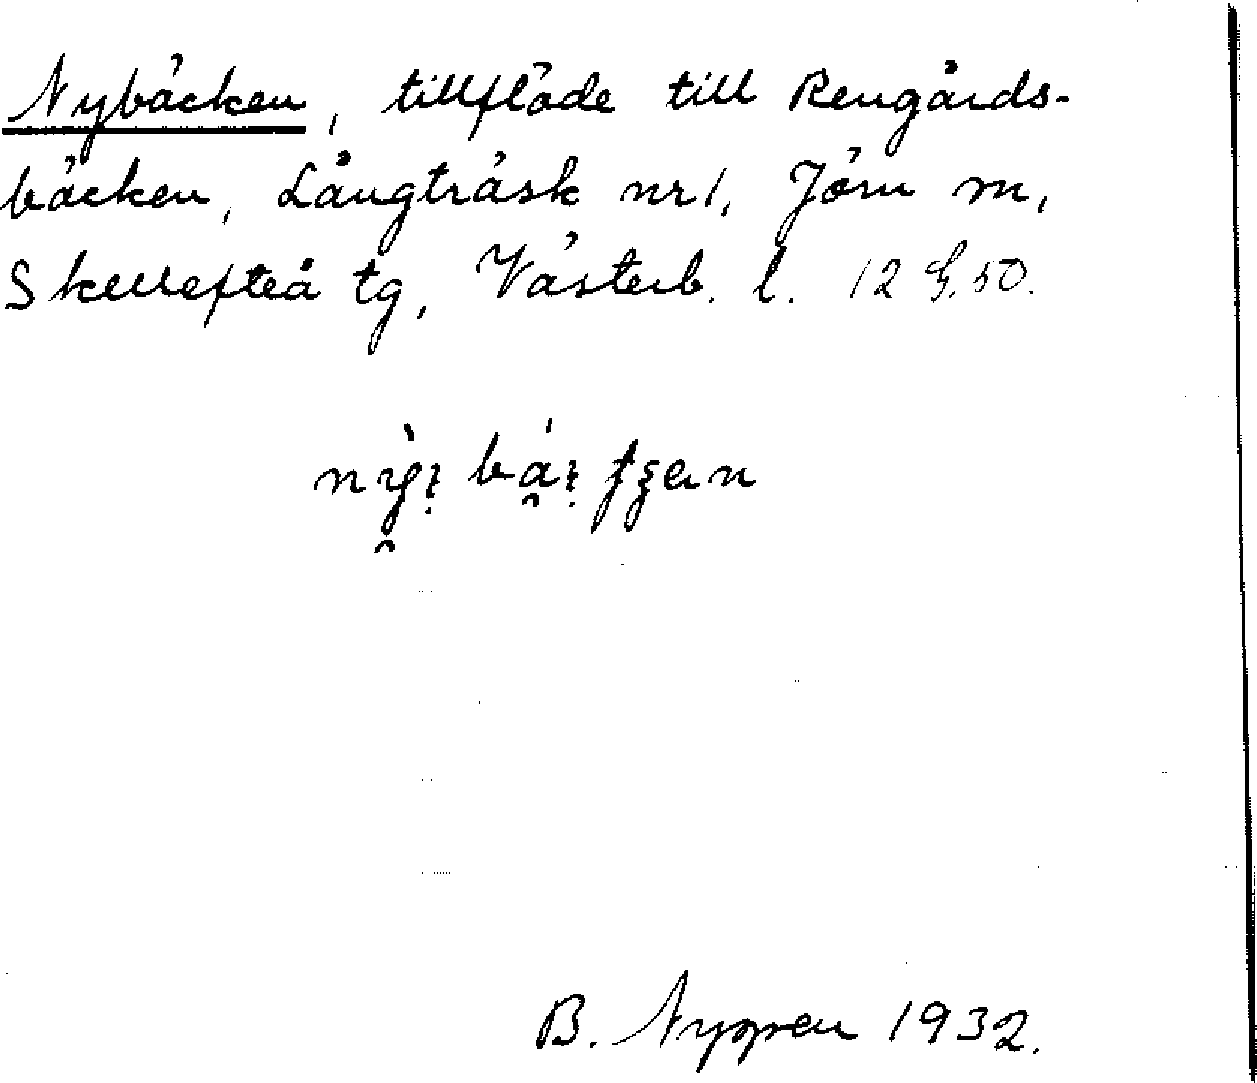 Nybäcken, tillflöde till Rengårds-
bäcken, Långträsk nr 1, Jörn m,
Skellefteå tg, Västerb. l. 12 G. 50.
B. Nyppen 1932.